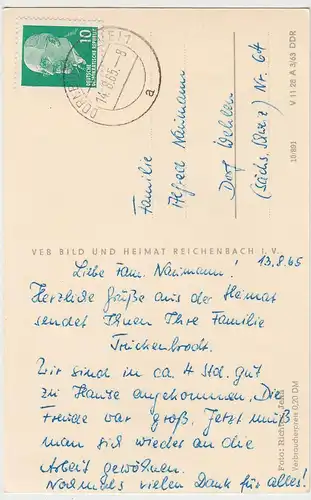 10
DEUTSCHE
DEMOKRATISCHE REPUBLIK
14.8.65.-8
a
Familie
Alfred Naumann
Dorf Wehlen
(Sächs. Schweiz) Nr. 64
V 11 28 A 3/63 DDR
10/891
VEB BILD UND HEIMAT REICHENBACH I. V.
13.8.65
Liebe Fam. Naumann!
Herzliche Grüße aus der Heimat
sendet Ihnen Ihre Familie
Trückenbrodt.
Wir sind in ca. 4 Std. gut
zu Hause angekommen. Die
Freude war groß. Jetzt muß
man sich wieder an die
Arbeit gewöhnen.
Nochmals vielen Dank für alles!
Foto:
Verbraucherpreis 0,20 DM